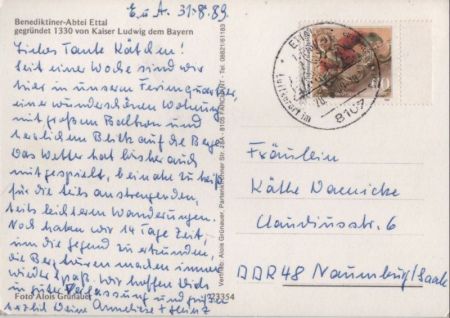 E. u. A. 31.8.89.
Benediktiner-Abtei Ettal
gegründet 1330 von Kaiser Ludwig dem Bayern
Liebes Tante Käthchen!
Seit einer Woche sind wir
hier in unserem Ferienquartier,
eine wunderschöne Wohnung
mit großem Balkon und
herrlichem Blick auf die Berge.
Das Wetter hat bisher auch
mitgespielt, beinahe zu heiß
für die teils anstrengenden,
teils leichteren Wanderungen.
Noch haben wir 14 Tage Zeit,
um die Gegend zu erkunden,
die Bergtouren machen immer
wieder Spaß. Wir hoffen Dich
in guter Verfassung und grüßen
herzlich Deine Anneliese + Heinz
Foto Alois Grünauer
73354
Vertrieb: Alois Grünauer, Partenkirchner Str. 23A - 8105 FARCHANT - Tel. 08821/61183
8107
Fräulein
Käthe Warnicke
Claudiusstr. 6
DDR 48 Naumburg/Saale